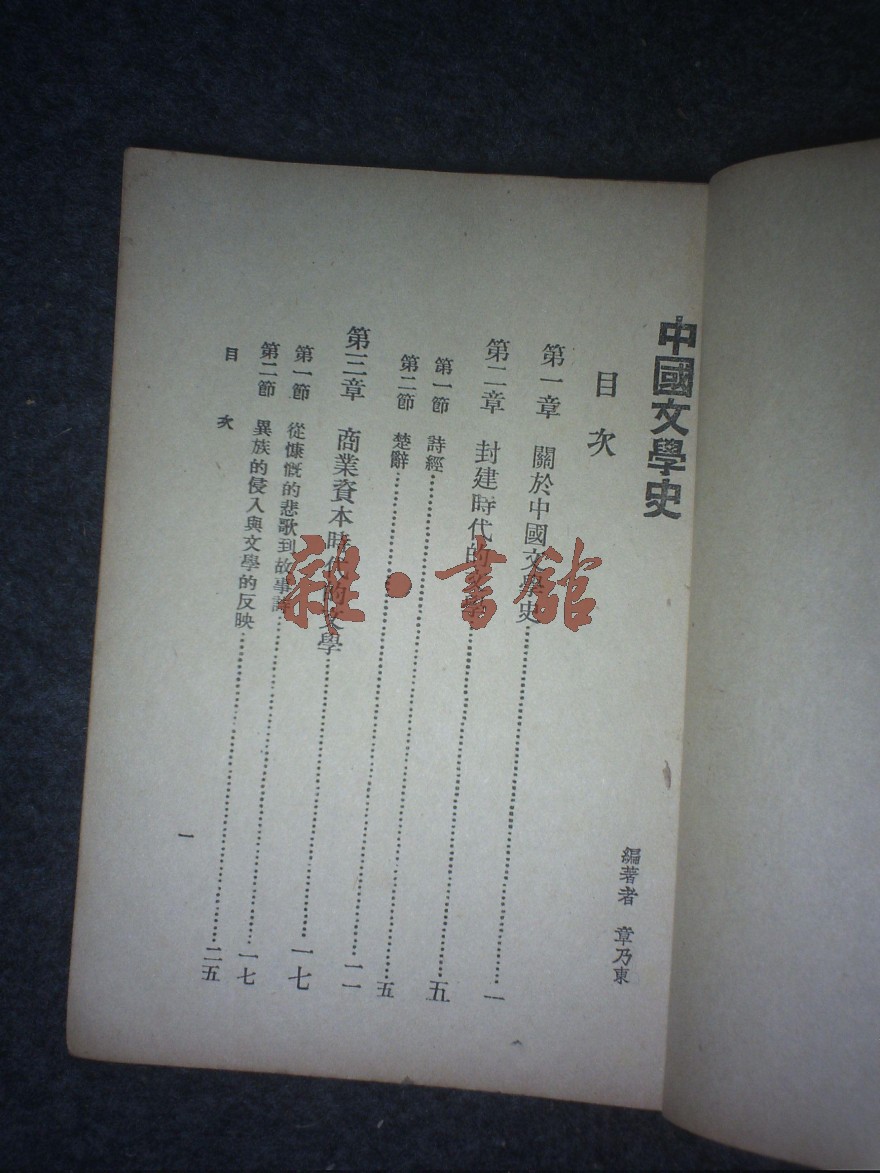 中國文學史
編著者 章乃東
目次
第一章 關於中國文學史……一
第二章 封建時代的文學……五
第一節 詩經……五
第二節 楚辭……一一
第三章 商業資本時代的文學……一七
第一節 從慷慨的悲歌到故事詩……一七
第二節 異族的侵入與文學的反映……二五
目次 一
雜·書館